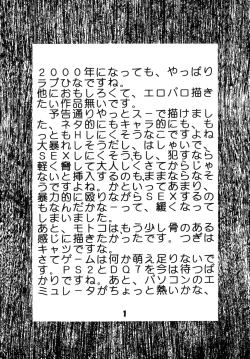 ２０００年になっても、やっぱり
ラブひなですね。
他におもしろくて、エロパロ描き
たい作品無いです。
予告通りやっとスーで描けまし
た、ネタ的にもキャラ的にも、も
っともHLにくそうなこですよね
大暴れしそうだし、はしゃいで、
SEXしにくそうもし、犯すなら
軽く脅して大人しくさてからじゃ
ないと挿入するのもままならなそ
うですよね。かといってあまり、
暴力的に殴りながらSEXするの
もなんだかなーって、緩くなって
しまいました。
あと、モトコはもう少し骨のある
感じに描きたかったです。つぎは
キャツですな。
さてゲームは何か萌え足りないで
す。PS2とDQ7を今は待つば
かりですね。あと、パソコンのエ
ミュレータがちょっと熱いかな、
1